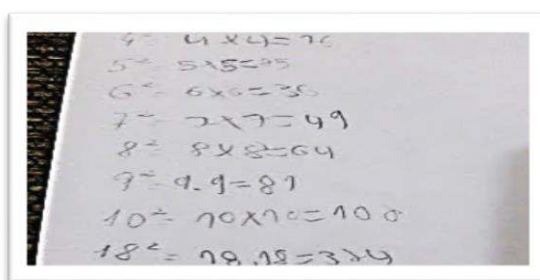 4² = 4×4=16
5² = 5×5=25
6² = 6×6=36
7² = 7×7=49
8² = 8×8=64
9² = 9.9=81
10² = 10×10=100
18² = 18.18=324